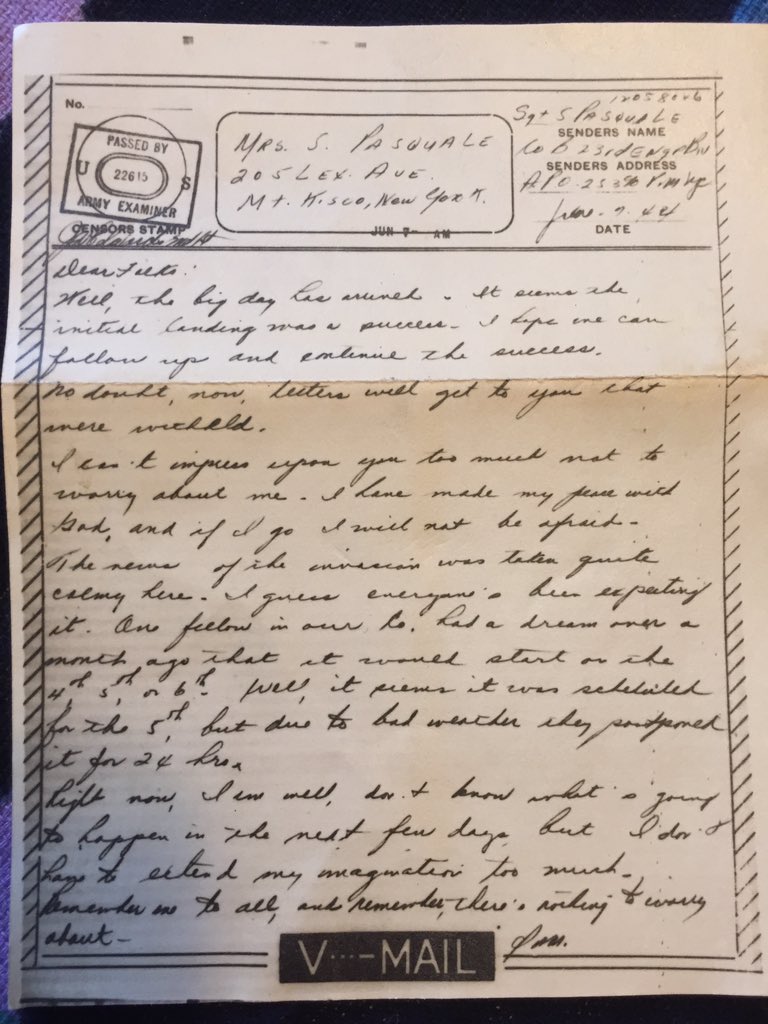 No.
PASSED BY
U 22615 S
ARMY EXAMINER
CENSORS STAMP
MRS. S. PASQUALE
205 LEX. AVE.
Mt. KISCO, NEW YORK.
JUN 7- AM
12058026
Sgt S PASQUALE
SENDERS NAME
Co B 231d Engr
SENDERS ADDRESS
APO
June - 7. 44
DATE
Dear Folks:
Well, the big day has arrived. It seems the
initial landing was a success. I hope we can
follow up and continue the success.
No doubt, now, letters will get to you that
were withheld.
I can't impress upon you too much not to
worry about me. I have made my peace with
God, and if I go I will not be afraid.
The news of the invasion was taken quite
calmy here. I guess everyone's been expecting
it. One fellow in our Co. had a dream over a
month ago that it would start on the
4th, 5th, or 6th. Well, it seems it was scheduled
for the 5th, but due to bad weather they postponed
it for 24 hrs.
Right now, I'm well, don't know what's going
to happen in the next few days, but I don't
have to extend my imagination too much.
Remember me to all, and remember, there's nothing to worry
about -
V···-MAIL